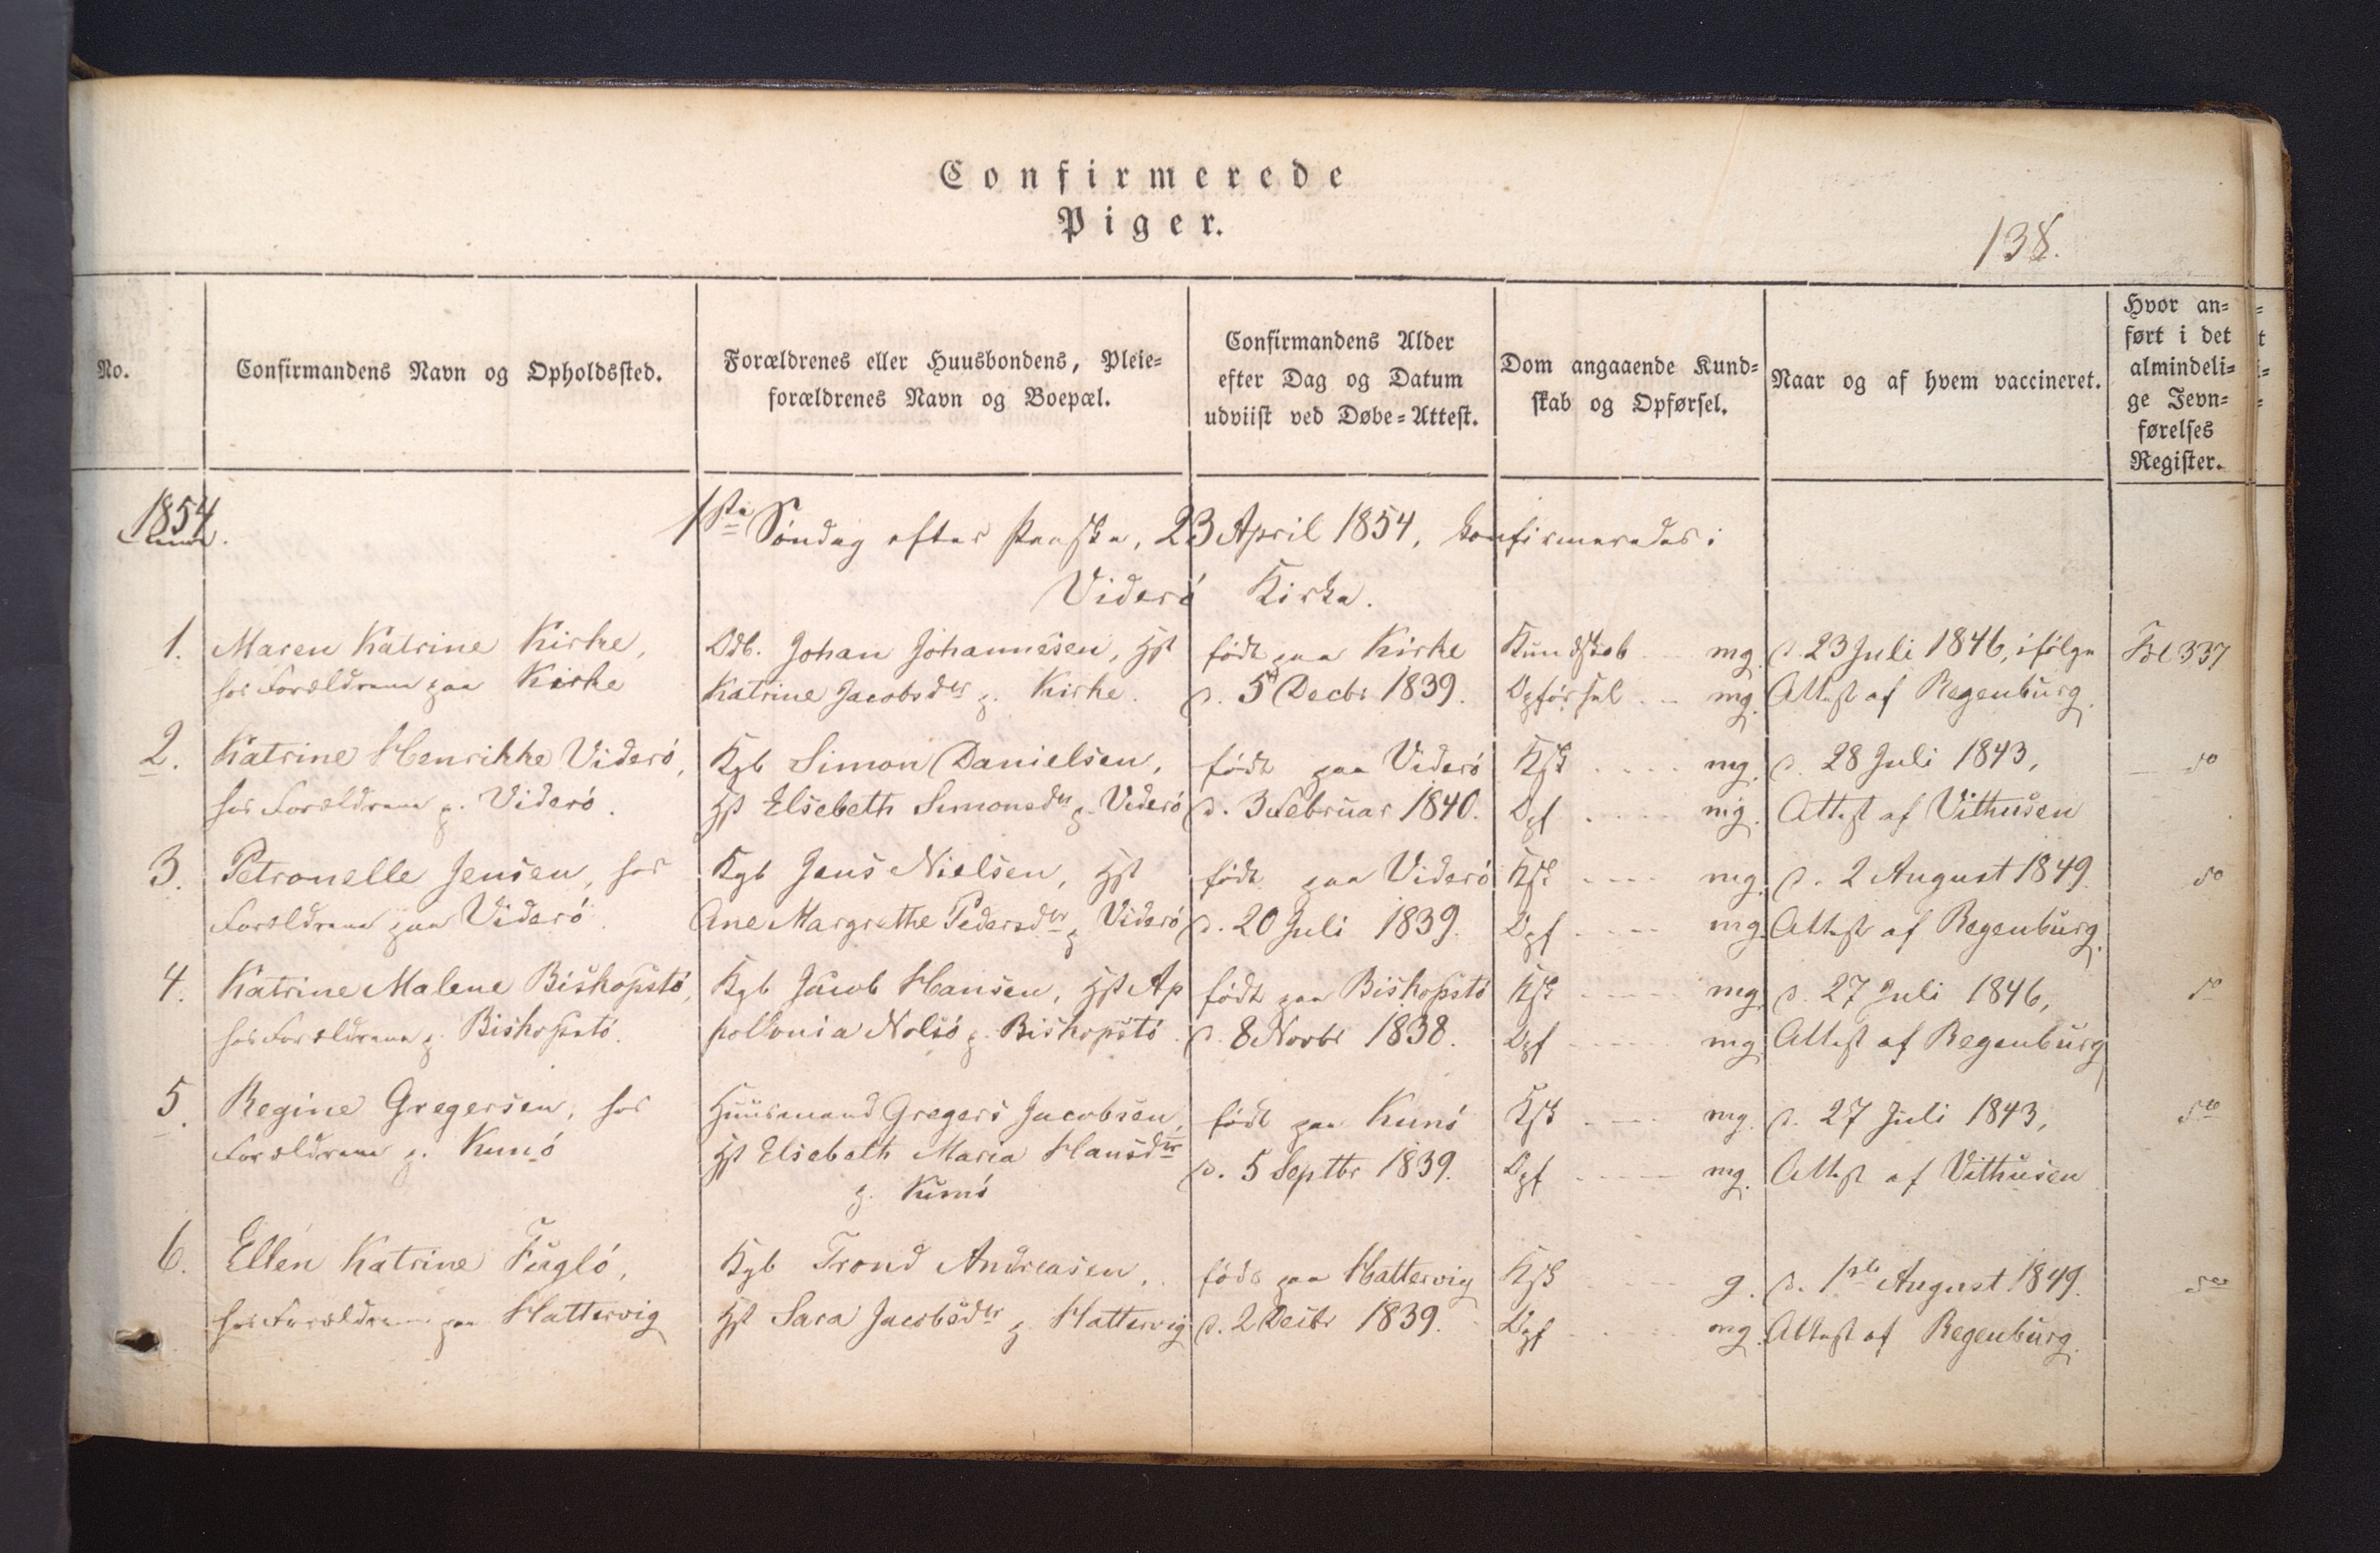 Confirmerede
Piger.
138.
No.
Confirmandens Navn og Opholdssted.
Forældrenes eller Huusbondens, Pleie=
forældrenes Navn og Boepæl.
Confirmandens Alder
efter Dag og Datum
udviist ved Døbe=Attest.
Dom angaaende Kund=
skab og Opførsel.
Naar og af hvem vaccineret.
Hvor an=
ført i det
almindeli=
ge Jevn=
førelses
Register.
1854
1ste Söndag efter Paaske, 23 April 1854, konfirmeredes i
Viderö Kirke.
1. Maren Katrine Kirke,
hos Forældrene paa Kirke
Odb. Johan Johannesen, Hst
Katrine Jacobsdtr p. Kirke.
født paa Kirke
d. 5 Decbr 1839.
Kundskab mg.
Opförsel mg.
d. 23 Juli 1846, ifölge
Attest af Regenburg.
Fol 337
2. Katrine Henrikke Viderö,
hos Forældrene p. Viderö.
Kgb Simon Danielsen,
Hst Elsebeth Simonsdtr p. Viderö
födt paa Viderö
d. 3 Februar 1840.
Ksk mg.
Opf mg.
d. 28 Juli 1843,
Attest af Vithusen
do
3. Petronelle Jensen, hos
Forældrene paa Viderö.
Kgb Jens Nielsen, Hst
Ane Margrethe Pedersdtr p Viderö
födt paa Viderö
d. 20 Juli 1839.
Ksk mg.
Opf mg.
d. 2 August 1849.
Attest af Regenburg.
do
4. Katrine Malene Bishopstö,
hos Forældrene p. Bishopstö.
Kgb Jacob Hansen, Hst Ap
pollonia Nolsö p. Bishopstö.
födt paa Bishopstö
d. 8 Novbr 1838.
Ksk mg.
Opf mg.
d. 27 Juli 1846,
Attest af Regenburg
do
5. Regine Gregersen, hos
Forældrene p. Kunö
Huusmand Gregers Jacobsen,
Hst Elsebeth Maria Hansdtr
p. Kunö
födt paa Kunö
d. 5 Septbr 1839.
Ksk mg.
Opf mg.
d. 27 Juli 1843,
Attest af Vithusen
do
6. Ellen Katrine Fuglö,
hos Forældrene paa Hattervig
Kgb Trond Andreasen,
Hst Sara Jacobsdtr p. Hattervig
födt paa Hattervig
d. 2 Decbr 1839.
Ksk g.
Opf mg.
d. 1ste August 1849.
Attest af Regenburg.
do